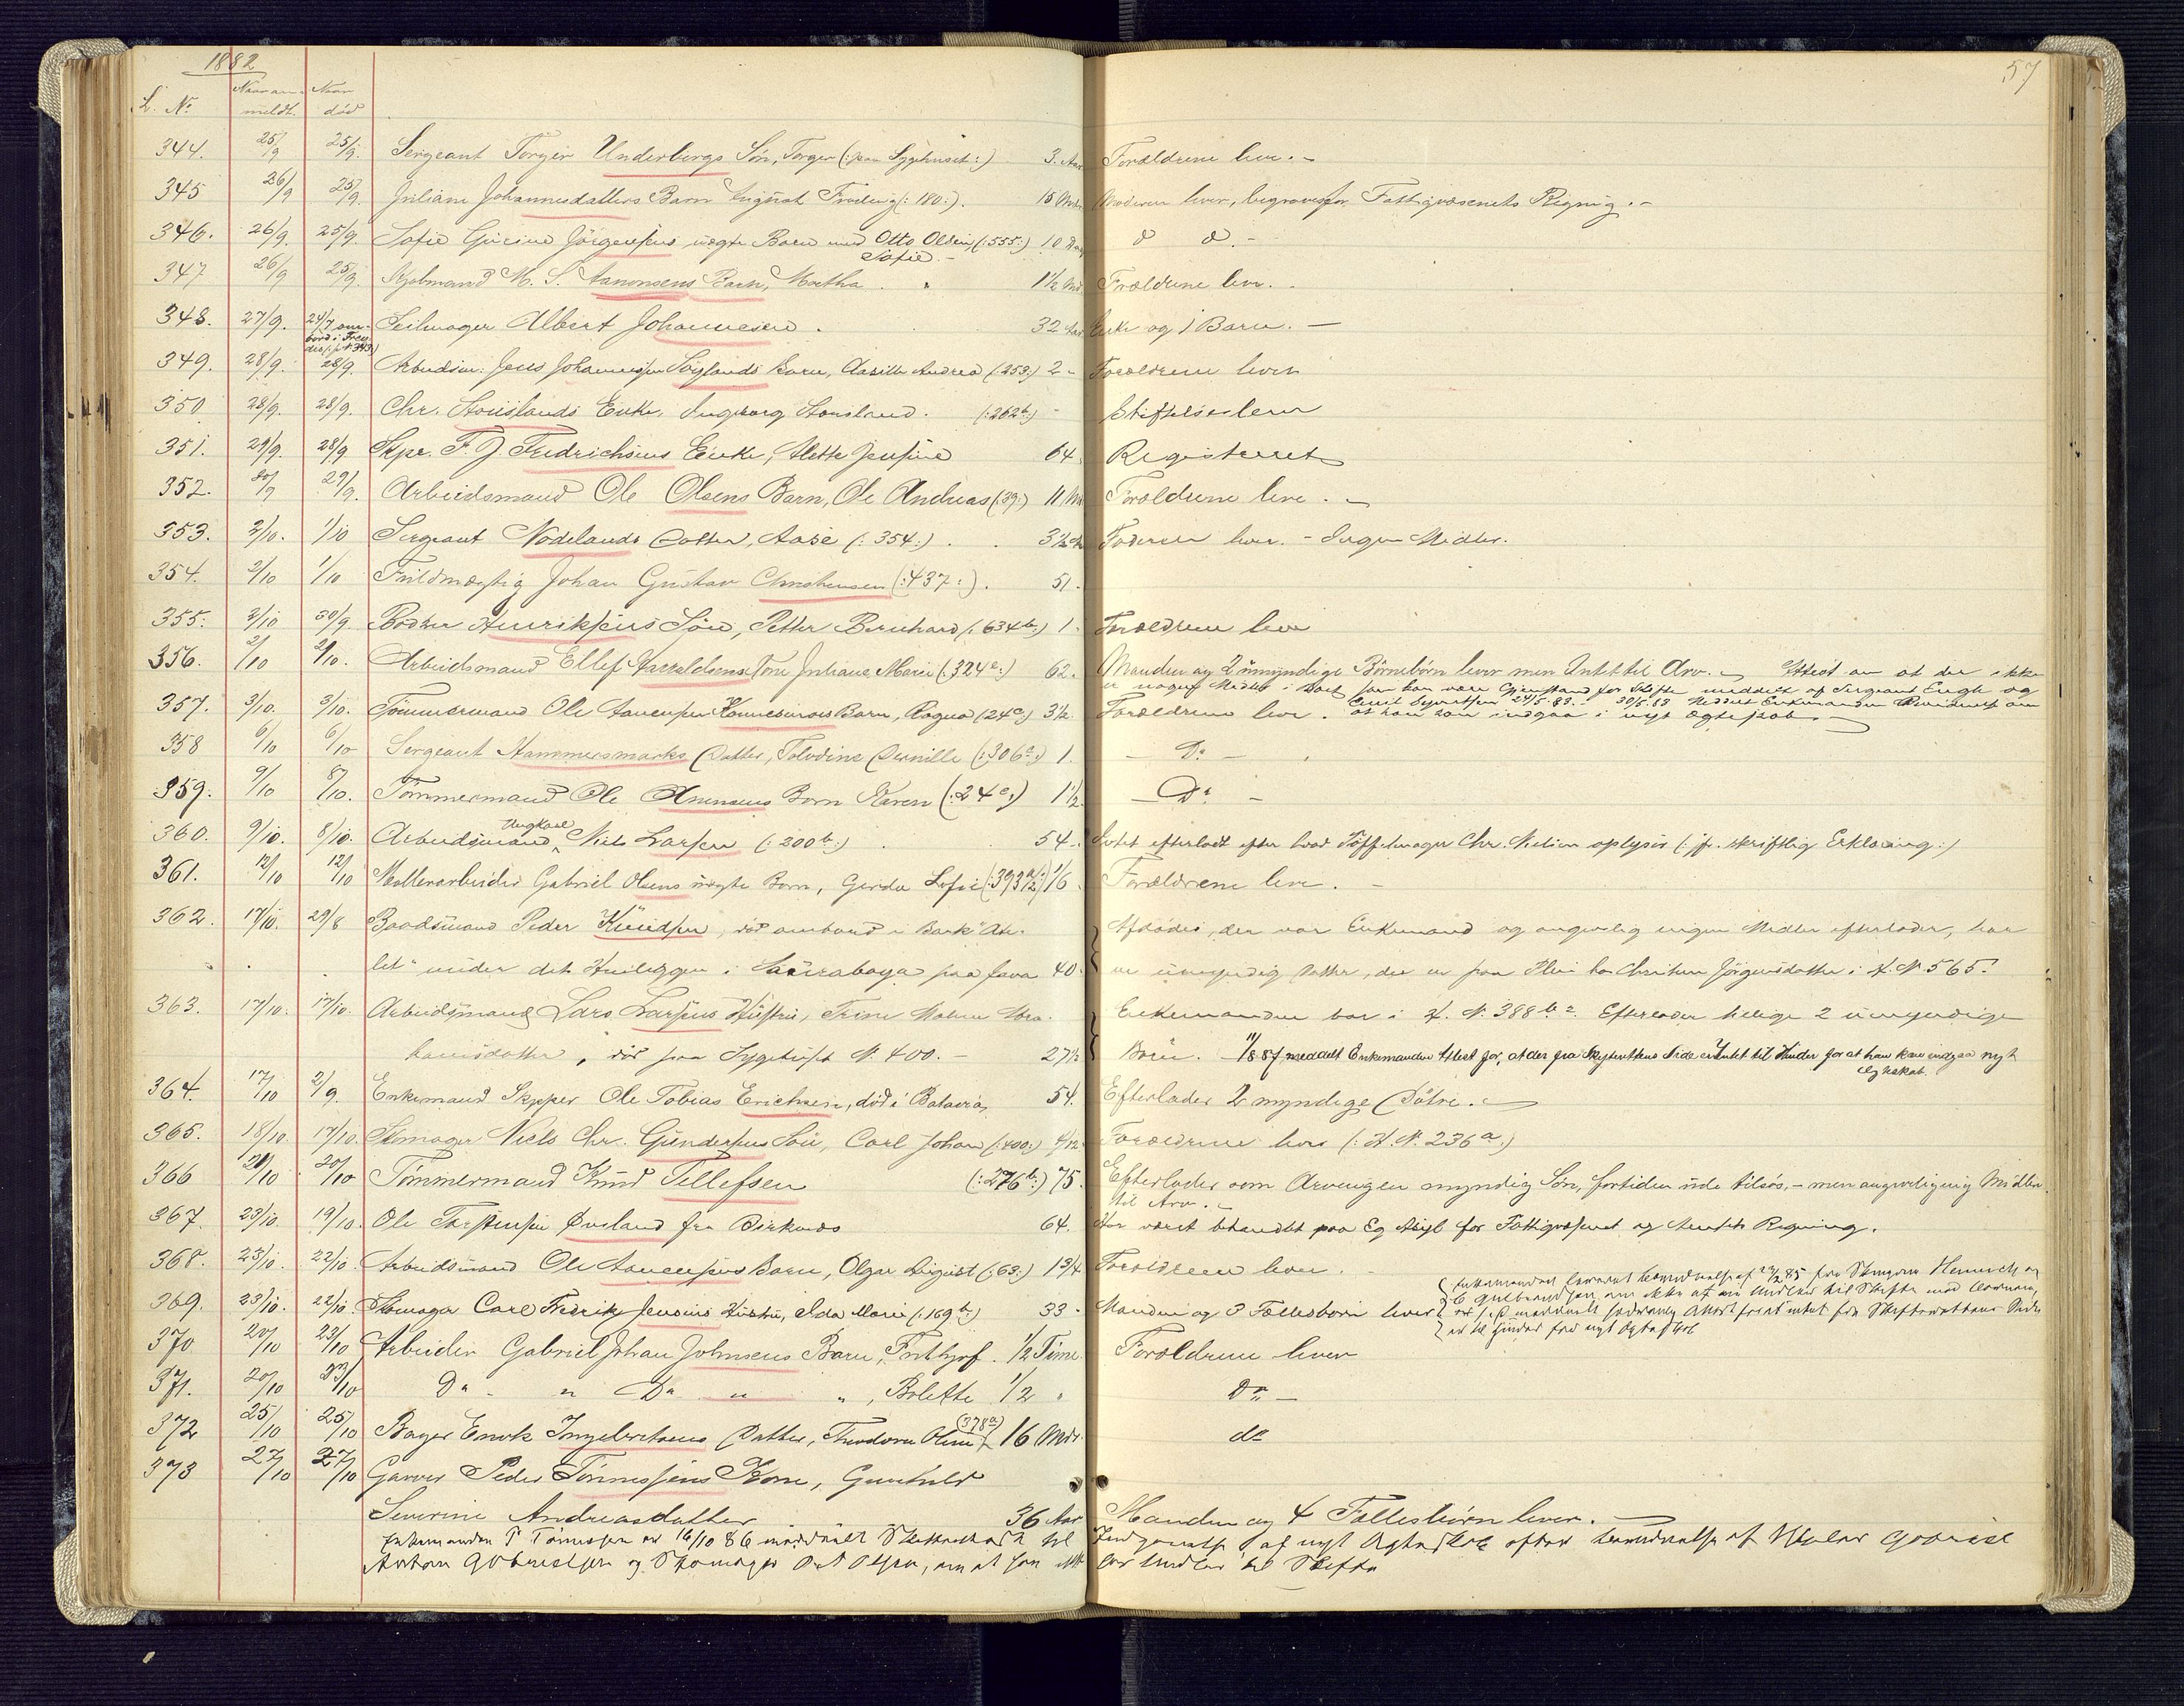 1882
57
L. No Naar an- meldt. Naar død
344. 25/9 25/9. Sergeant Torger Underbergs Søn, Torger (: paa Sygehuset :) 3. Aar Forældrene lever. -
345 26/9 25/9. Juliane Johannesdatters Barn August (: 180 :). 15 Mdr. Moderen lever, begraves for Fattigvæsenets Regning. -
346. 26/9. 25/9. Sofie Gurine Jörgensens uægte Barn med Otto Olsen, (: 555 :) 10 Dage d d. -
Sofie. -
347 26/9 25/9. Kjøbmand M. S. Aanonsens Barn, Martha. " 1 1/2 Md. Forældrene lever. -
348. 27/9. 24/7 om- Seilmager Albert Johannesen. 32 Aar Enke og 1 Barn. -
bord i
349. 28/9. 28/9. Arbeidsm. Jens Johannessen Föglands Barn, Andrea (: 253 :) 2 - Forældrene lever
350 28/9. 28/9. Chr. Houslands Enke, Ingeborg Housland. (: 262 b :) - Stiftelseslem
351. 29/9. 28/9 Skpr. F. J. Fredrichsens Enke, Mette Josefine 64. Registreret
352. 30/9 29/9. Arbeidsmand Ole Olsens Barn, Ole Andreas (: 39 :) 11 Md. Forældrene lever. -
353. 2/10. 1/10 Sergeant Nodelands Datter, Aase (: 354 :). 3 1/2 Faderen lever. - Ingen Midler.
354. 2/10 1/10 Fuldmægtig Johan Gustav Christensen (: 437 :). 51.
355. 2/10 30/9. Bødker Henriksens Søn, Petter Bernhard (: 634 b :) 1. Forældrene lever
356. 2/10 2/10. Arbeidsmand Ellef Haraldsens Kone Juliane Marie (: 324 a :) 62. Manden og 2 umyndige Børnebørn lever men Intet til Arv. - Attest om at der ikke
er nogen Midler i Boet som kan være Gjenstand for Skifte meddelt af Sergeant Engh og
357. 3/10. 3/10. Tømmermand Ole Aanensen Barn, Ragna (: 24 c :) 3 1/2 Forældrene lever. 24/5 83. - 30/5 83 Meddelt Enkemanden om
at han kan indgaa i nyt Ægteskab. -
358 6/10 6/10 Sergeant Hammersmarks Datter, Pernille (: 306 a :) 1. - Do -
359. 9/10 8/10. Tømmermand Ole Aanensens Barn Karen (: 24 c :) 1 1/2. - Do -
360. 9/10. 8/10. Arbeidsmand, Ungkarl Niels Larsen (: 200 b :). 54. Intet efterladt efter hvad Tøffelmager Chr. Nielsen oplyser (: jfr. skriftlig Erklæring :)
361. 12/10 12/10 Møllerarbeider Gabriel Olsens uægte Barn, Gerda Sofie (: 393 :) 1/6. Forældrene lever. -
362. 17/10. 29/8 Baadsmand Peder Knudsen, død ombord i Bark "At-
let" under dets Henliggen i Sourabaya paa Java 40. Afdøde, der var Enkemand og angivelig ingen Midler efterlader, har
en umyndig Datter, der er paa Pleie hos Christine Jörgensdatter i H. No 565.
363. 17/10. 17/10. Arbeidsmand Lars Larsens Hustru, Trine Malene Abra- Enkemanden bor i H. No 388 b 2. Efterlader tillige 2 umyndige
hamsdatter, død paa Sygehuset No 400. - 27 1/2 Børn. 11/8 87 meddelt Enkemanden Attest for, at der fra Skifterettens Side er Intet til Hinder for at han kan indgaa nyt
Ægteskab.
364. 17/10 2/9. Enkemand Skipper Ole Tobias Erichsen, død i Batavia, 54. Efterlader 2 myndige Døtre. -
365. 18/10. 17/10. Skomager Niels Chr. Gundersens Søn, Carl Johan (: 400 :) 4/12. Forældrene lever (: H. No. 236 a :)
366 20/10 20/10 Tømmermand Knud Tellefsen (: 276 b :) 75. Efterlader som Arvinger myndig Søn, fortiden ude tilsøs, - men angivelig ingen Midler
til Arv. -
367. 23/10. 19/10. Ole Torstensen Øveland fra Birkenes 64. Har været behandlet paa Eg Asyl for Fattigvæsenet og Amtets Regning.
368. 23/10. 22/10. Arbeidsmand Ole Aanensens Barn, Olga August (: 63 :) 1 3/4 Forældrene lever.
369. 23/10. 22/10. Skomager Carl Fredrik Jensens Hustru, Ida Marie (: 169 b :) 33 - Manden og 3 Fællesbørn lever
er til Hinder for nyt Ægteskab
370 20/10 23/10 Arbeider Gabriel Johan Johnsens Barn, Frithjof. 1/2 Time. Forældrene lever
371. 20/10 23/10 Do - " Do " ", Bolette 1/2 " Do -
372 25/10 25/10 Bager Enok Ingebretsens Datter, Theodora Oline (378 a) 16 Mdr. do
373 27/10 27/10 Garver Peder Tönnessens Kone, Gunhild
Severine Andreasdatter 36 Aar Manden og 4 Fællesbørn lever. -
Enkemanden P Tönnessen er 16/10 86 meddelt Skifteattest til Indgaaelse af nyt Ægteskab efter af Gabriel
Anton Gabrielsen og Skomager Olsen, om at han ikke har Midler til Skifte